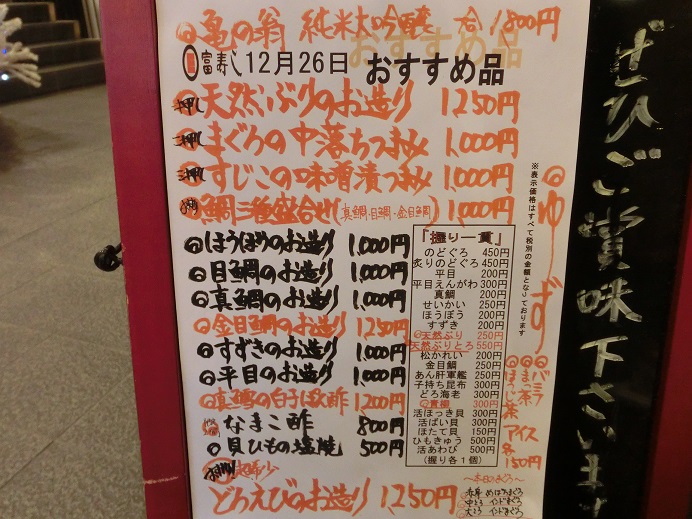 亀の翁 純米大吟醸 一合 1,800円
富寿し 12月26日 おすすめ品
天然ぶりのお造り 1250円
まぐろの中落ちつまみ 1,000円
すじこの味噌漬つまみ 1,000円
鯛三種盛合せ(真鯛・目鯛・金目鯛) 1,000円
ほうぼうのお造り 1,000円
目鯛のお造り 1,000円
真鯛のお造り 1,000円
金目鯛のお造り 1,250円
すずきのお造り 1,000円
平目のお造り 1,000円
真鱈の白子ぽん酢 1200円
なまこ酢 800円
貝ひもの塩焼 500円
どろえびのお造り 1,250円
『握り一貫』
のどぐろ 450円
炙りのどぐろ 450円
平目 200円
平目えんがわ 300円
真鯛 200円
せいかい 250円
ほうぼう 200円
すずき 200円
天然ぶり 250円
天然ぶりとろ 550円
松かれい 200円
金目鯛 250円
あん肝軍艦 250円
子持ち昆布 300円
どろ海老 300円
300円
活ほっき貝 300円
活ばい貝 300円
ほたて貝 150円
ひもきゅう 500円
活あわび 500円
(握り各1個)
※表示価格はすべて税別の金額となっております
ゆず
バニラ
まっ茶
ほうじ茶
アイス
各
150円
～本日のまぐろ～
赤身 めばちまぐろ
中とろ インドまぐろ
大とろ インドまぐろ
ぜひご賞味下さいませ